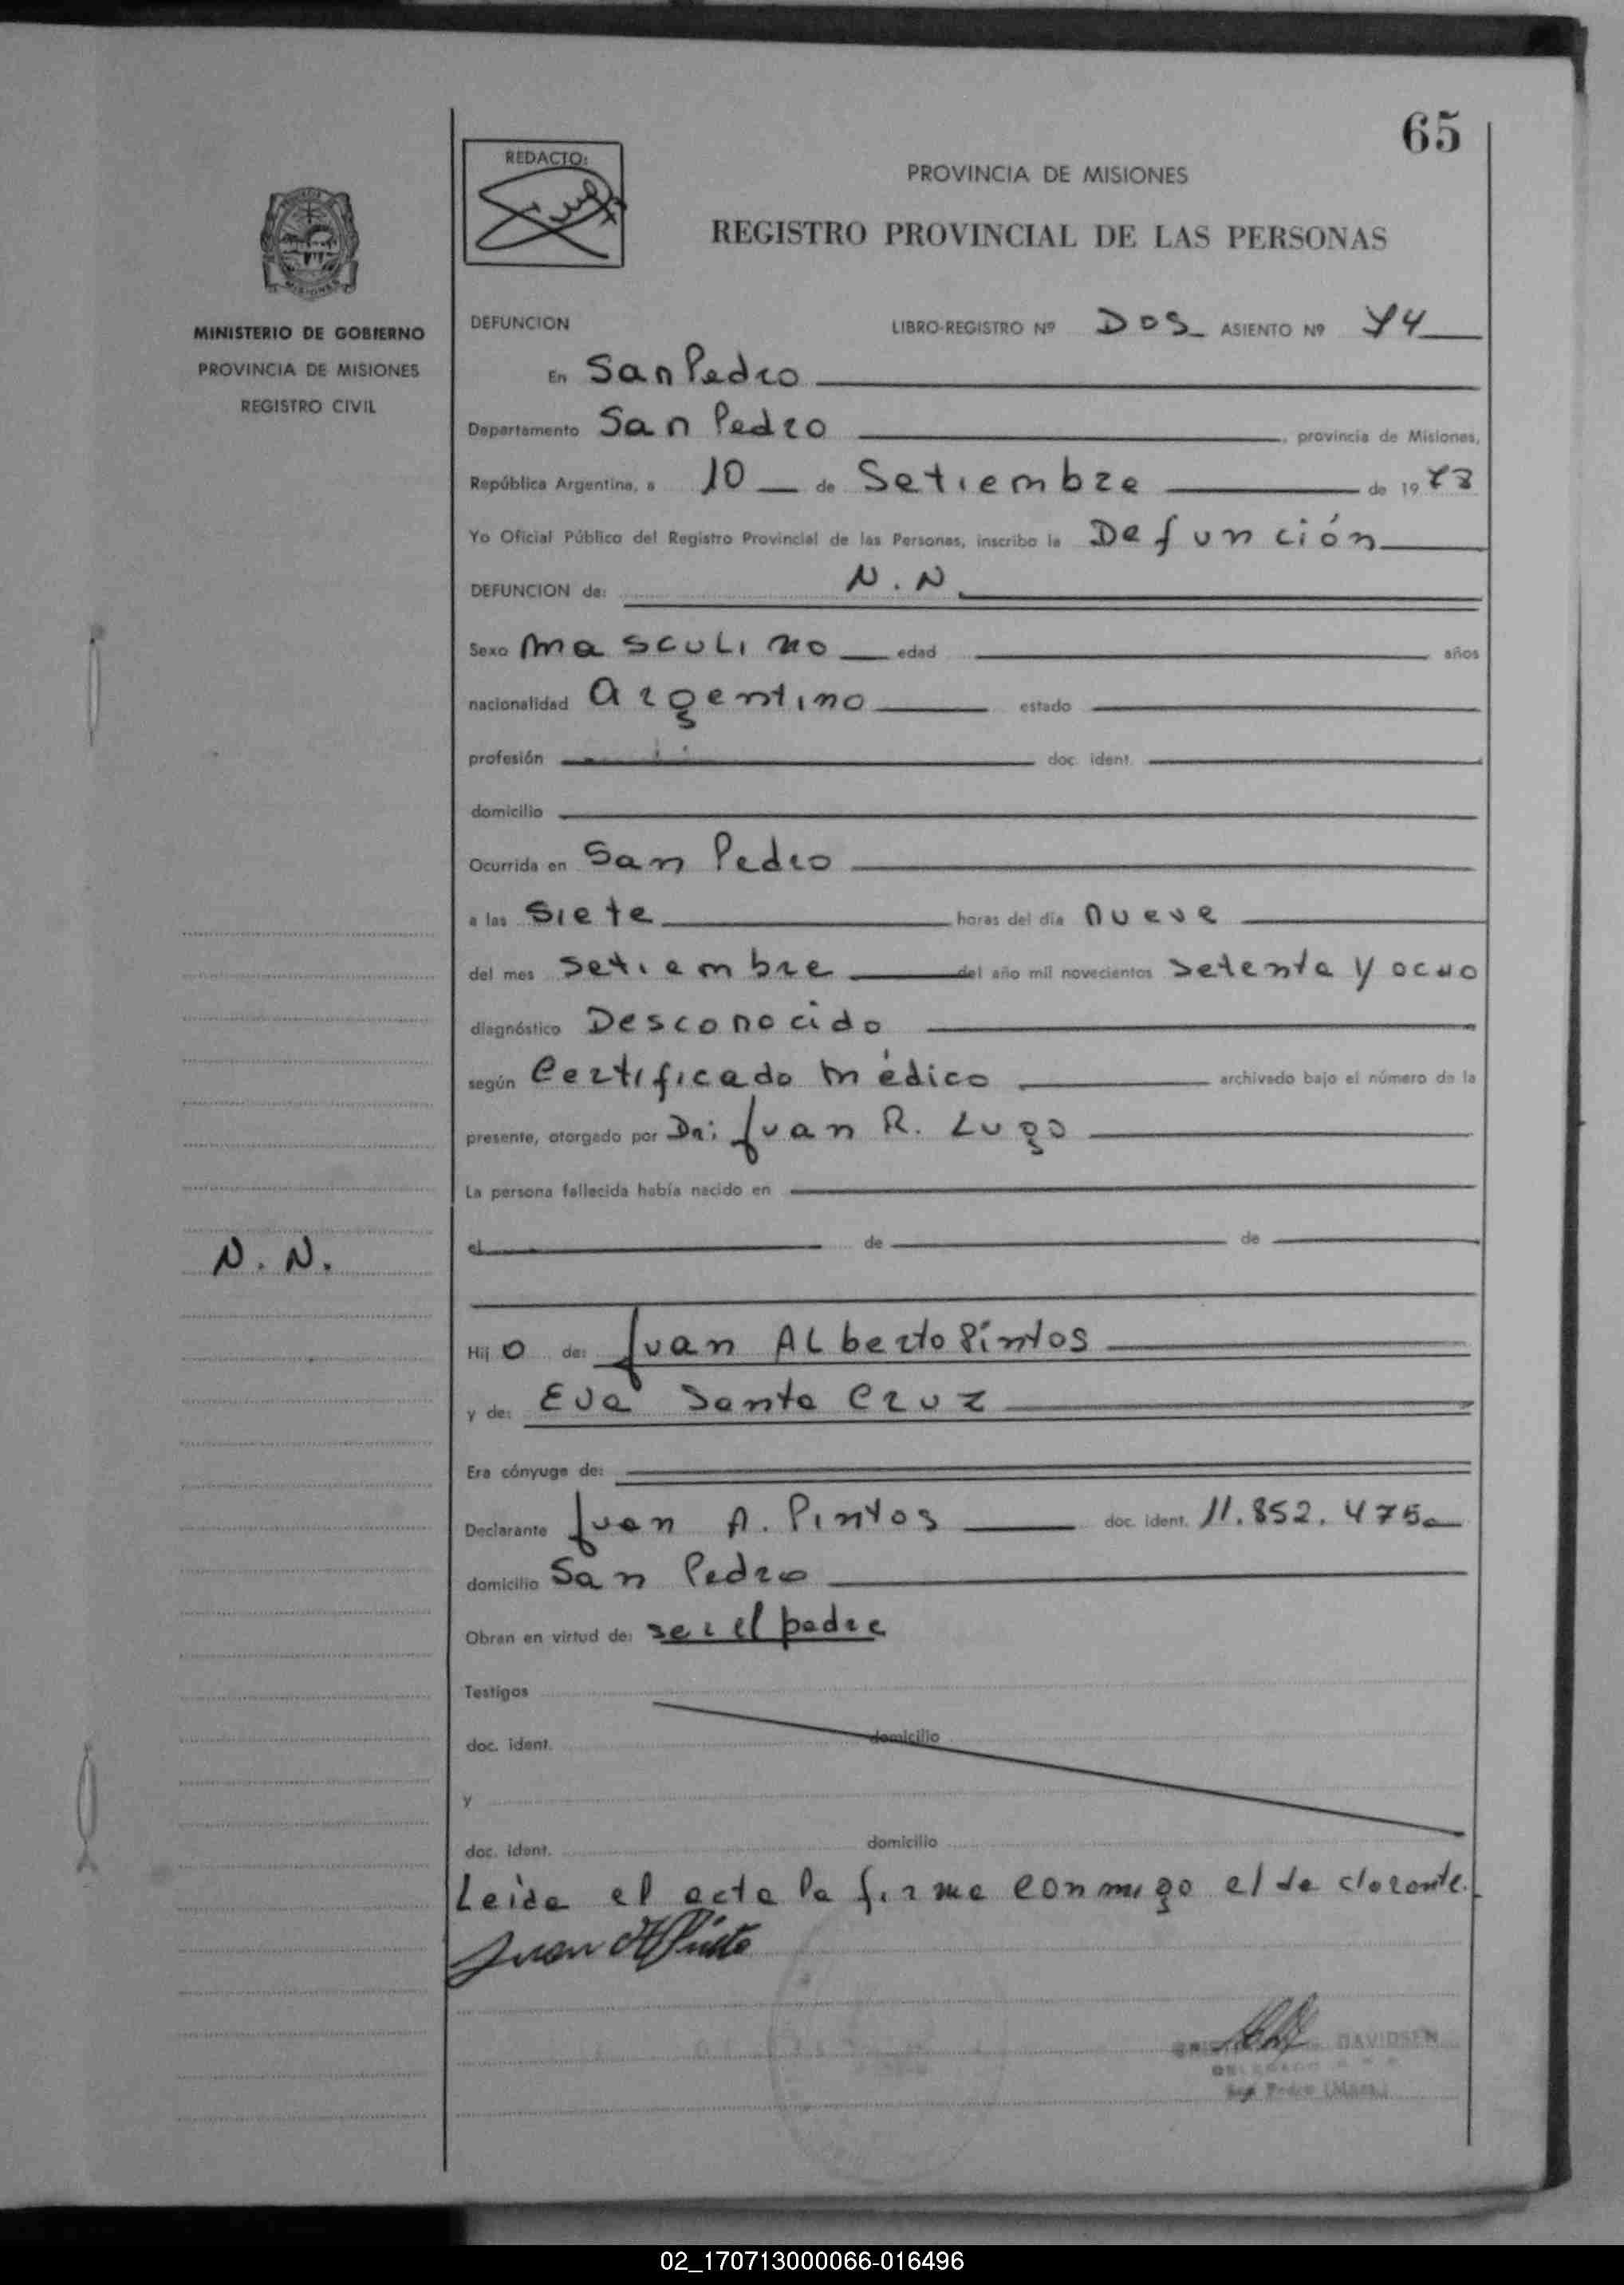 65
REDACTO:
PROVINCIA DE MISIONES
REGISTRO PROVINCIAL DE LAS PERSONAS
MISIONES
MINISTERIO DE GOBIERNO
PROVINCIA DE MISIONES
REGISTRO CIVIL
DEFUNCION LIBRO-REGISTRO Nº DOS ASIENTO Nº 74
En San Pedro
Departamento San Pedro, provincia de Misiones,
República Argentina, a 10 de Setiembre de 1978
Yo Oficial Público del Registro Provincial de las Personas, inscribo la Defunción
DEFUNCION de: N.N.
Sexo masculino edad años
nacionalidad Argentino estado
profesión doc. ident.
domicilio
Ocurrida en San Pedro
a las Siete horas del día nueve
del mes Setiembre del año mil novecientos Setenta y ocho
diagnóstico Desconocido
según Certificado médico archivado bajo el número de la
presente, otorgado por Dr: Juan R. Lugo
La persona fallecida había nacido en
N.N.
el de de
Hijo de: Juan Alberto Pintos
y de: Eva Santa Cruz
Era cónyuge de:
Declarante Juan A. Pintos doc. ident. 11.852.475
domicilio San Pedro
Obran en virtud de: ser el padre
Testigos
doc. ident. domicilio
y
doc. ident. domicilio
Leida el acta la firma conmigo el declarante.
Juan A Pinto
DAVIDSEN
San Pedro (Mnes.)
02_170713000066-016496